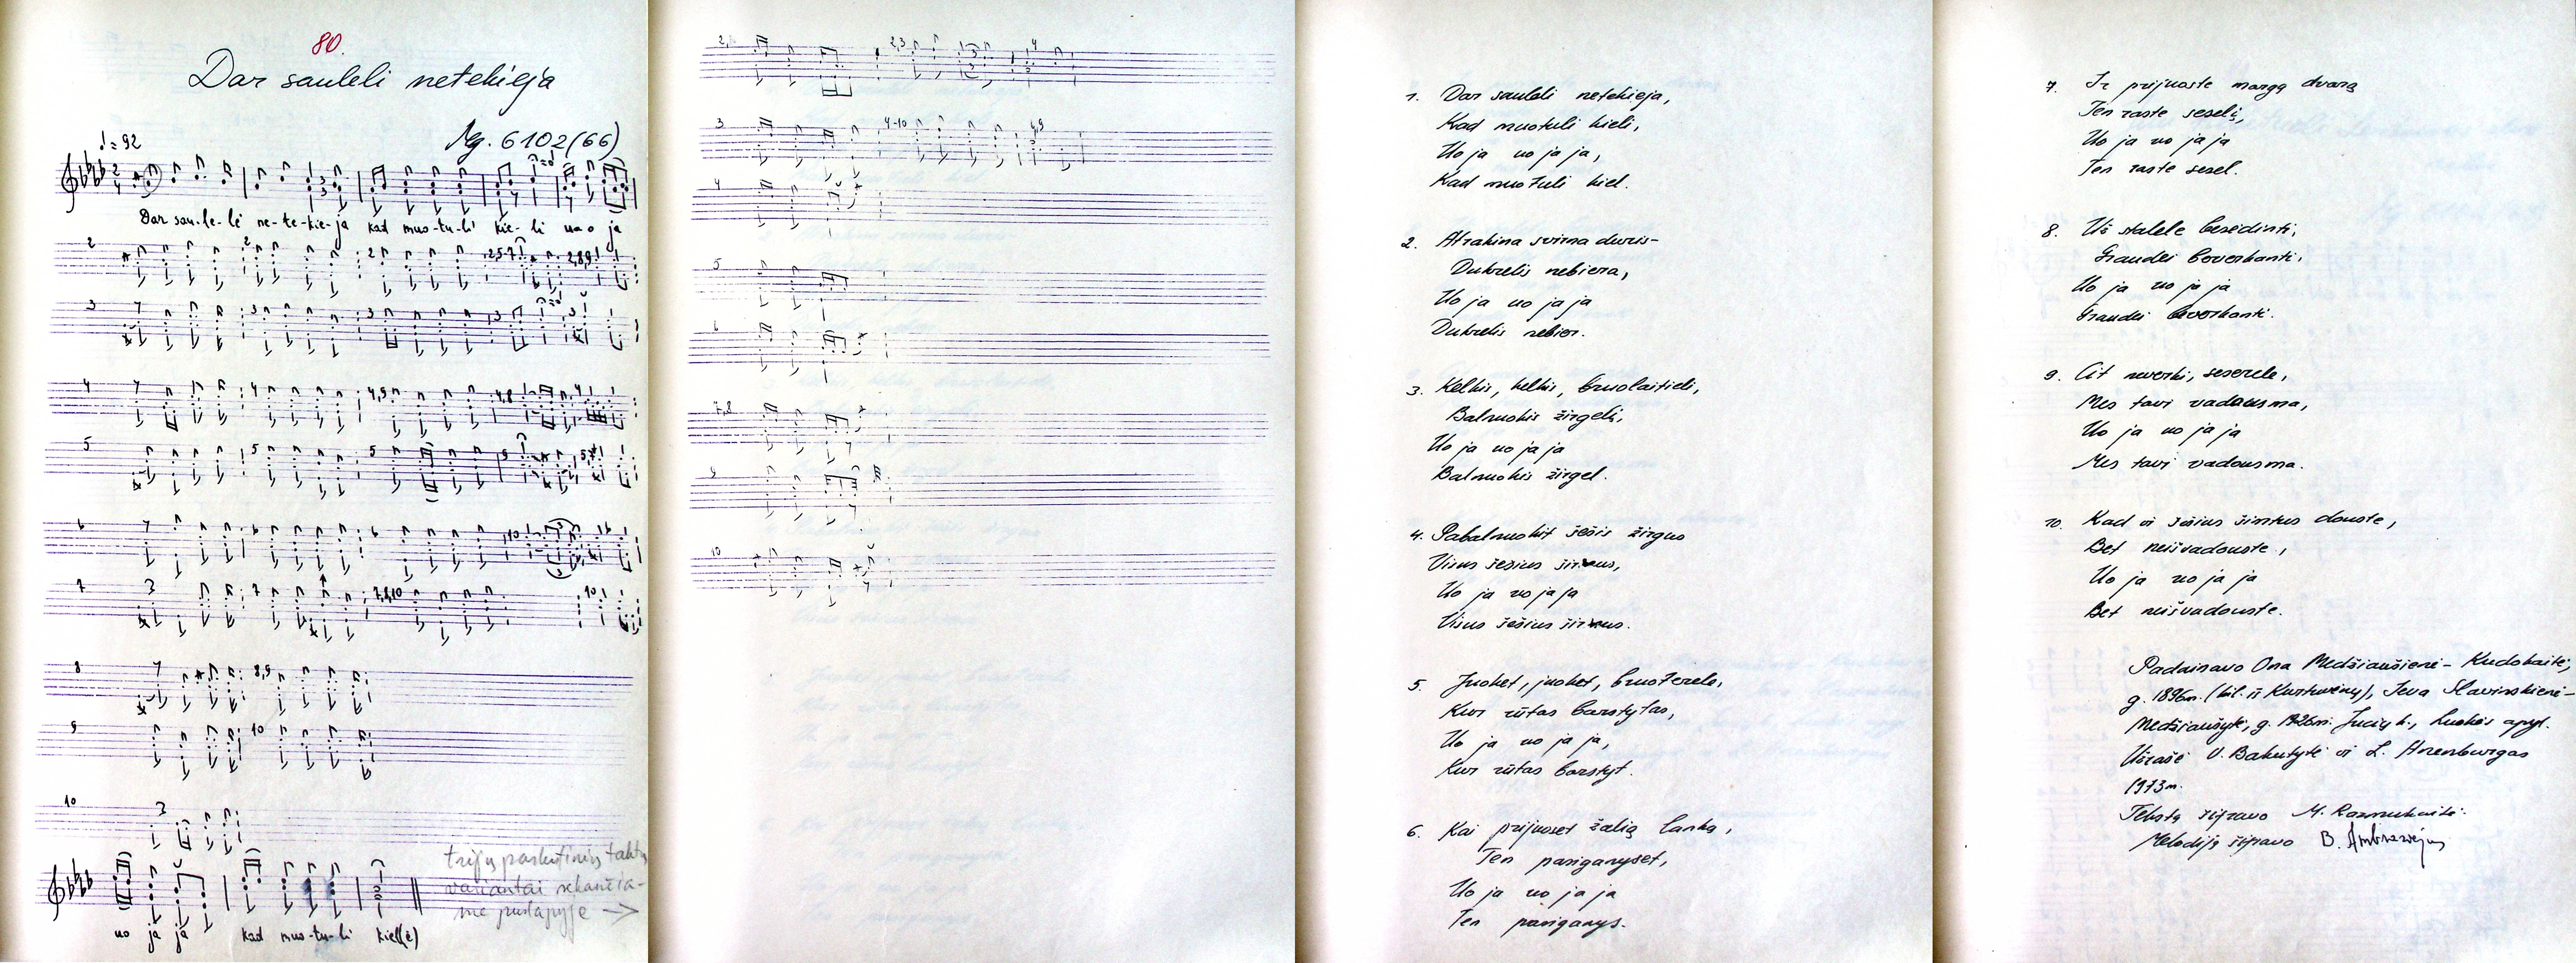 80.
Dar sauleli netekieja
Mg. 6102(66)
♩=92
Dar sau-le-li ne-te-kie-ja kad muo-tu-li kie-li uo o ja
uo ja ja kad muo-tu-li kiel(i)
trijų paskutinių taktų
variantai sekančia-
me puslapyje →
1. Dar sauleli netekieja,
Kad muotuli kieli,
Uo ja uo ja ja,
Kad muotuli kiel.
2. Atrakina svirna duris-
Dukrelis nebiera,
Uo ja uo ja ja
Dukrelis nebier.
3. Kelkis, kelkis, bruolaitieli,
Balnuokis žirgelį,
Uo ja uo ja ja
Balnuokis žirgel.
4. Pabalnuokit šešis žirgus
Visus šešius širmus,
Uo ja uo ja ja
Visus šešius širmus.
5. Juoket, juoket, bruoterele,
Kur rūtas barstytas,
Uo ja uo ja ja,
Kur rūtas barstyt.
6. Kai prijuoset žalią lanką,
Ten pasiganyset,
Uo ja uo ja ja
Ten pasiganys.
7. Ir prijuoste margą dvarą
Ten raste seselį,
Uo ja uo ja ja
Ten raste sesel.
8. Už stalele besėdinti,
Graudei beverkanti,
Uo ja uo ja ja
Graudei beverkanti.
9. Cit neverki, seserele,
Mes tavi vadausma,
Uo ja uo ja ja
Mes tavi vadousma.
10. Kad ir šešius šimtus douste,
Bet neišvadouste,
Uo ja uo ja ja
Bet neišvadouste.
Padainavo Ona Medžiaušienė - Kudokaitė,
g. 1896m. (kil. iš Kurtuvėnų), Ieva Slavinskienė-
Medžiaušytė, g. 1926m. Jucių k., Luokės apyl.
Užrašė V. Bakutytė ir L. Horenburgas
1973m.
Tekstą šifravo M. Razmukaitė.
Melodiją šifravo B. Ambraziejus